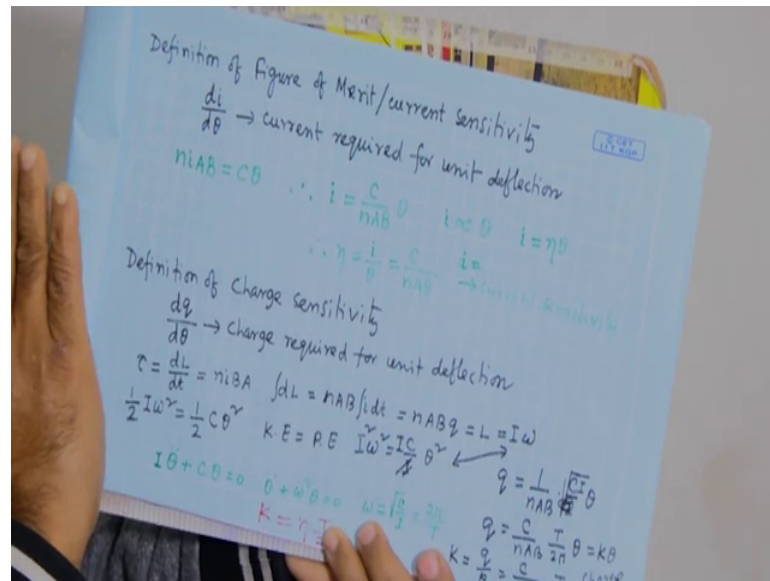 Definition of Figure of Merit/current sensitivity
di/dθ → current required for unit deflection
niAB = Cθ ∴ i = C/nAB θ i ∝ θ i = ηθ
∴ η = i/θ = C/nAB i =
→ current sensitivity
Definition of charge sensitivity
dq/dθ → charge required for unit deflection
τ = dL/dt = niBA ∫dL = nAB∫idt = nABq = L = Iω
½Iω² = ½Cθ² K.E = P.E I²ω² = IC θ²
q = 1/nAB √CI θ
Iθ̈ + Cθ = 0 θ̈ + ω²θ = 0 ω = √C/I = 2π/T
q = C/nAB T/2π θ = kθ
K = η
K = q/θ = C